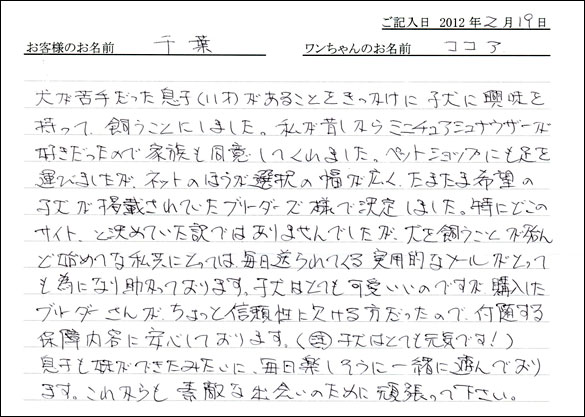 ご記入日 2012年2月19日
お客様のお名前 千葉 ワンちゃんのお名前 ココア
犬が苦手だった息子(小3)があることをきっかけに子犬に興味を
持って、飼うことにしました。私が昔からミニチュアシュナウザーが
好きだったので家族も同意してくれました。ペットショップにも足を
運びましたが、ネットのほうが選択の幅が広く、たまたま希望の
子犬が掲載されていたブリーダーズ様で決定しました。特にどこの
サイト、と決めていた訳ではありませんでしたが、犬を飼うことが殆ん
ど始めてな私共にとっては、毎日送られてくる実用的なメールがとって
も為になり助かっております。子犬はとても可愛いいのですが購入した
ブリーダーさんが、ちょっと信頼性に欠ける方だったので、付随する
保障内容に安心しております。( 子犬はとても元気です!)
息子も妹ができたみたいに、毎日楽しそうに一緒に遊んでおり
ます。これからも素敵な出会いのために頑張って下さい。